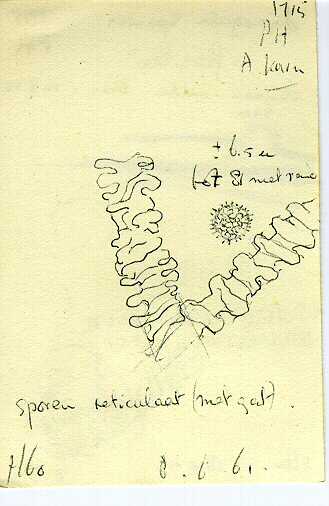 1715
PH
A
± 6.5 u
tot 8 met
sporen reticulaat (met gat).
H60
8. 6 61.